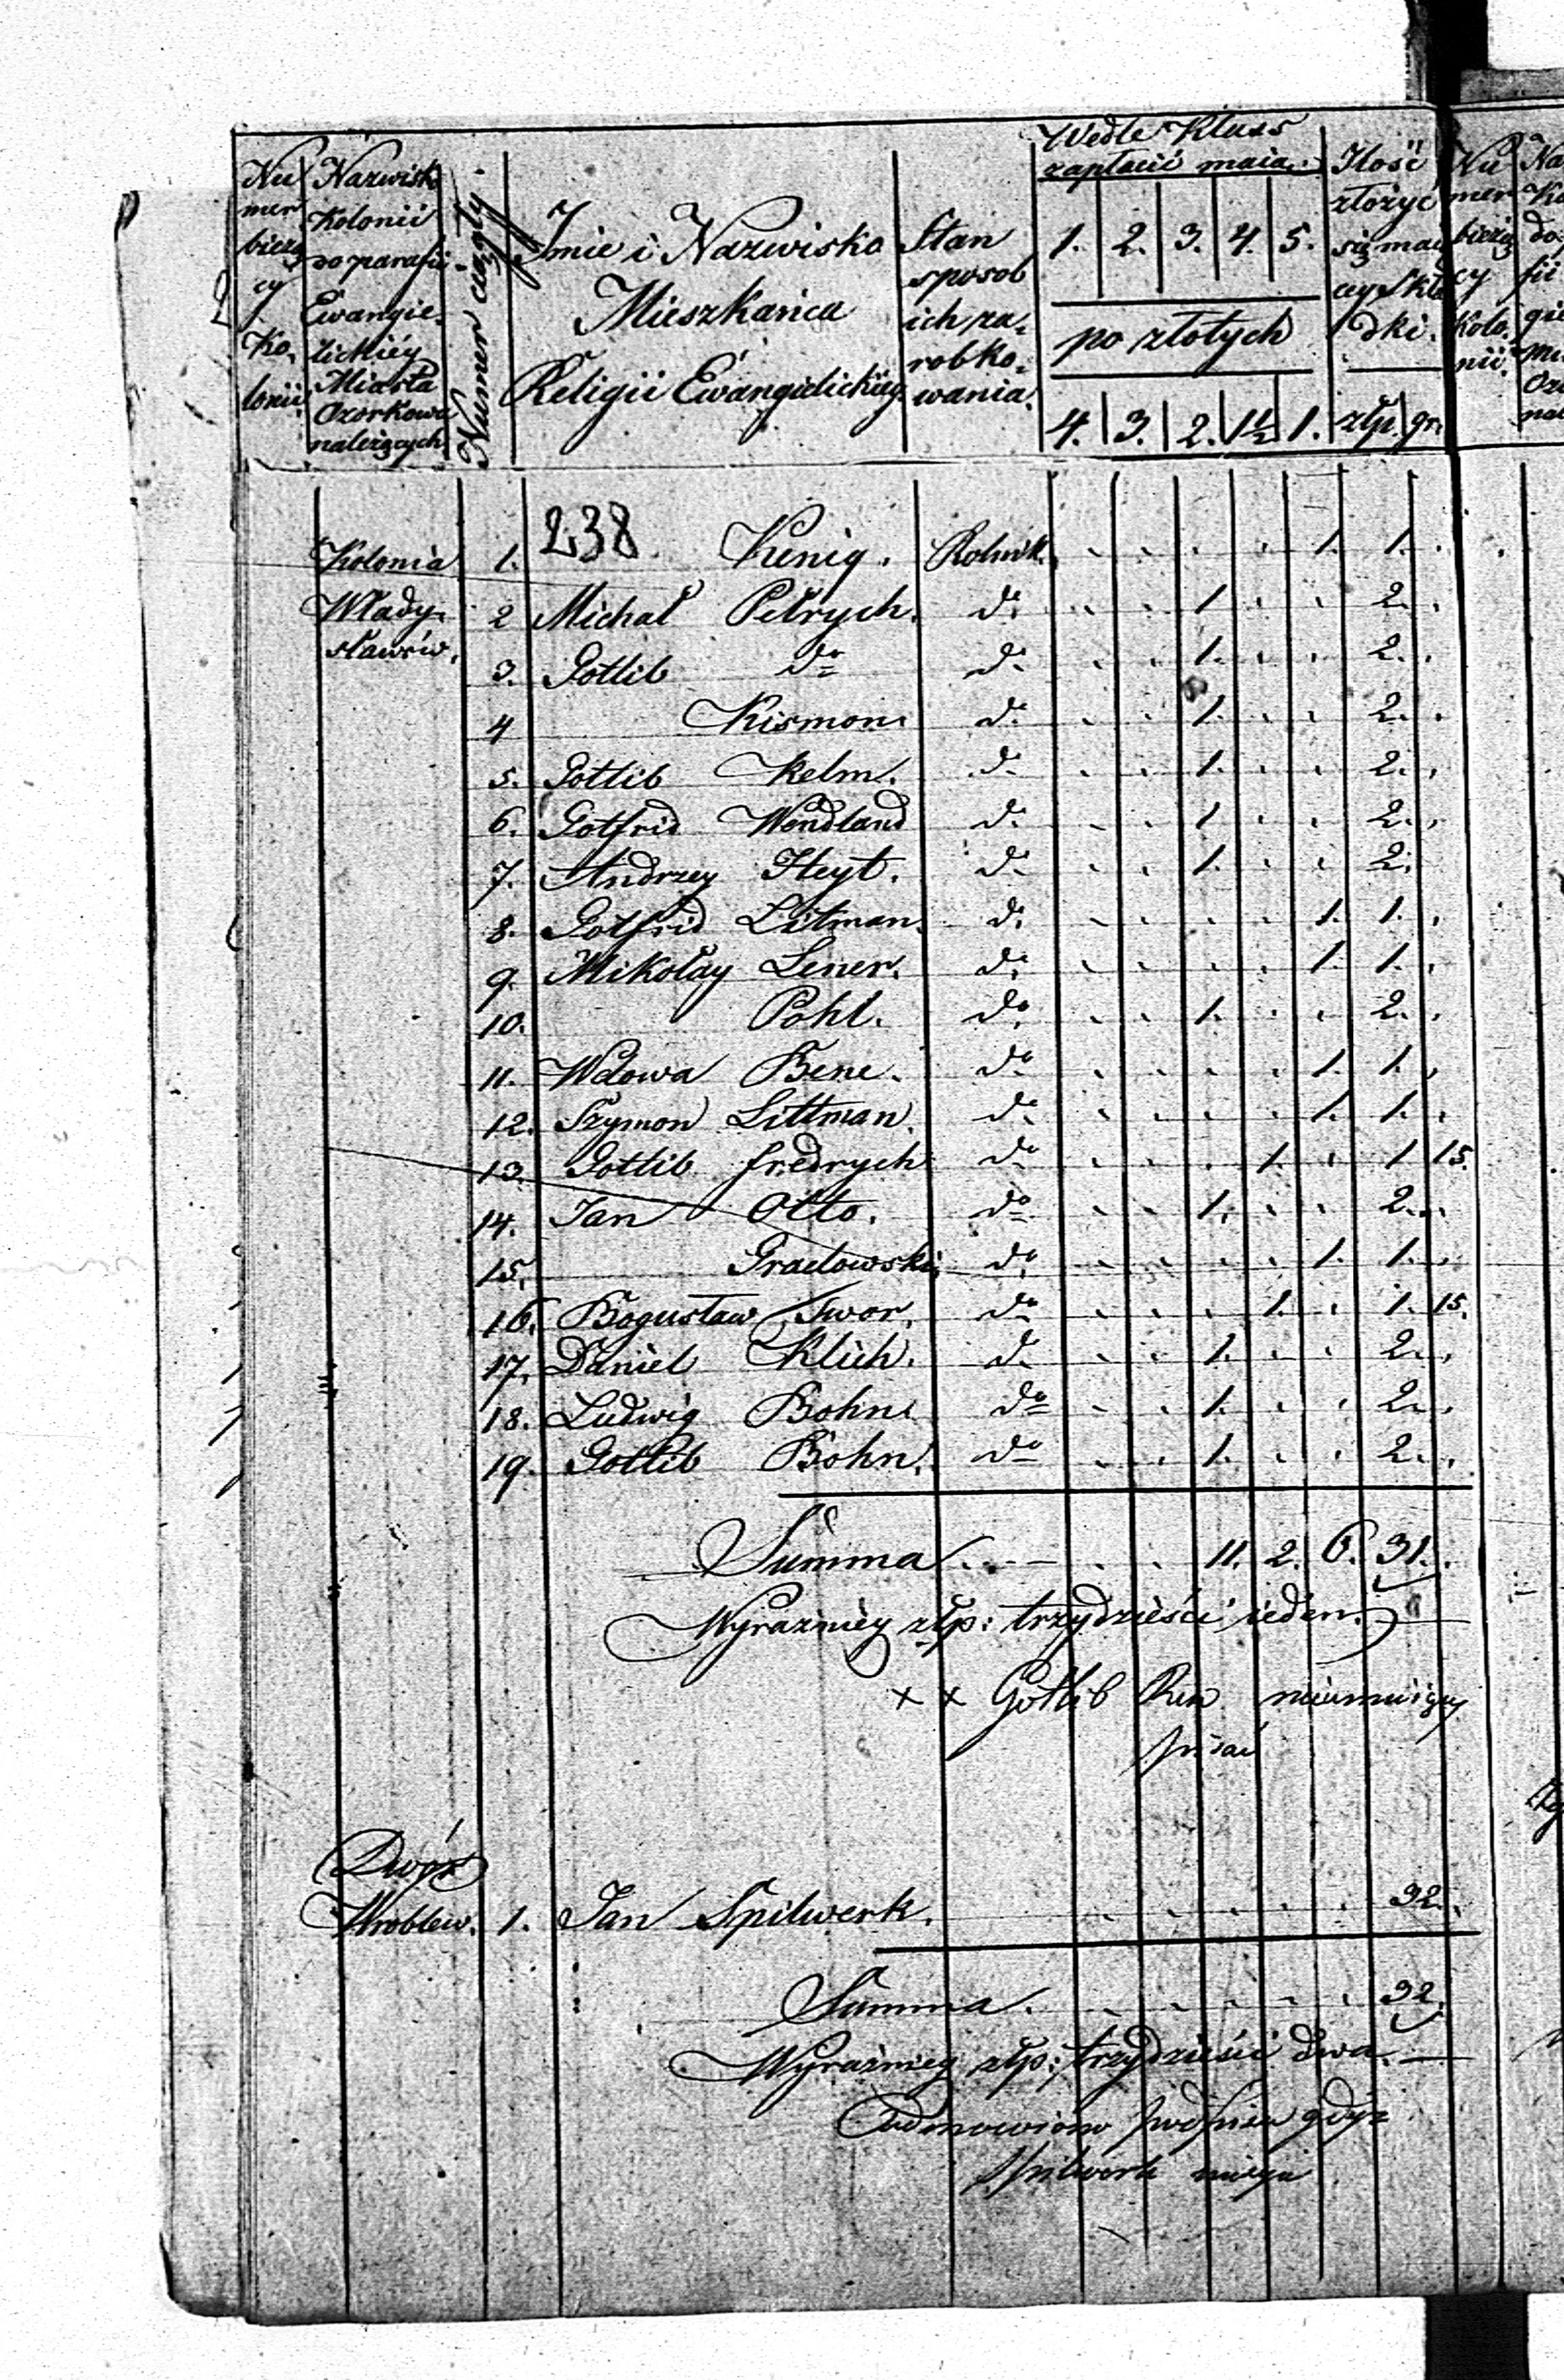 Numer bieżący Kolonii. | Nazwisko Kolonii do parafii Ewangielickiéy Miasta Ozorkowa należących | Numer ciągły. | Imie i Nazwisko Mieszkańca Religii Ewangielickiéy. | Stan sposob ich zarobkowania. | Wedle Klass zapłacić maią. | Ilość złożyć się maiącey składki.
1. | 2. | 3. | 4. | 5.
po złotych
4. | 3. | 2. | 1½ | 1. | złp. | gr.
238
Kolonia 1. Kenig. Rolnik. 1. 1.
Włady- 2 Michał Petrych. do 1. 2.
sławów. 3. Gotlib do do 1. 2.
4 Kismon. do 1. 2.
5. Gotlib Kelm. do 1. 2.
6. Gotfrid Wendland do 1. 2.
7. Andrzey Heyt. do 1. 2.
8. Gotfrid Litman. do 1. 1.
9. Mikołay Lener. do 1. 1.
10. Pohl. do 1. 2.
11. Wdowa Bene. do 1. 1.
12. Szymon Littman. do 1. 1.
13. Gotlib fredrych do 1. 1 15.
14. Jan Otto. do 1. 2.
15. Gradowski. do 1. 1.
16. Bogusław Twor. do 1. 1. 15.
17. Daniel Klich. do 1. 2.
18. Ludwig Bohn. do 1. 2.
19. Gotlib Bohn. do 1. 2.
Summa 11. 2. 6. 31.
Wyraźniéy złp: trzydzieści ieden.
× × Gotlib Ren nieumieiący
pisać
Dwór
Wroblew. 1. Jan Spilwerk. 32.
Summa. 32.
Wyraźniey złp: trzydzieści dwa.
odmowiono podpisu gdyż
Spilwerk